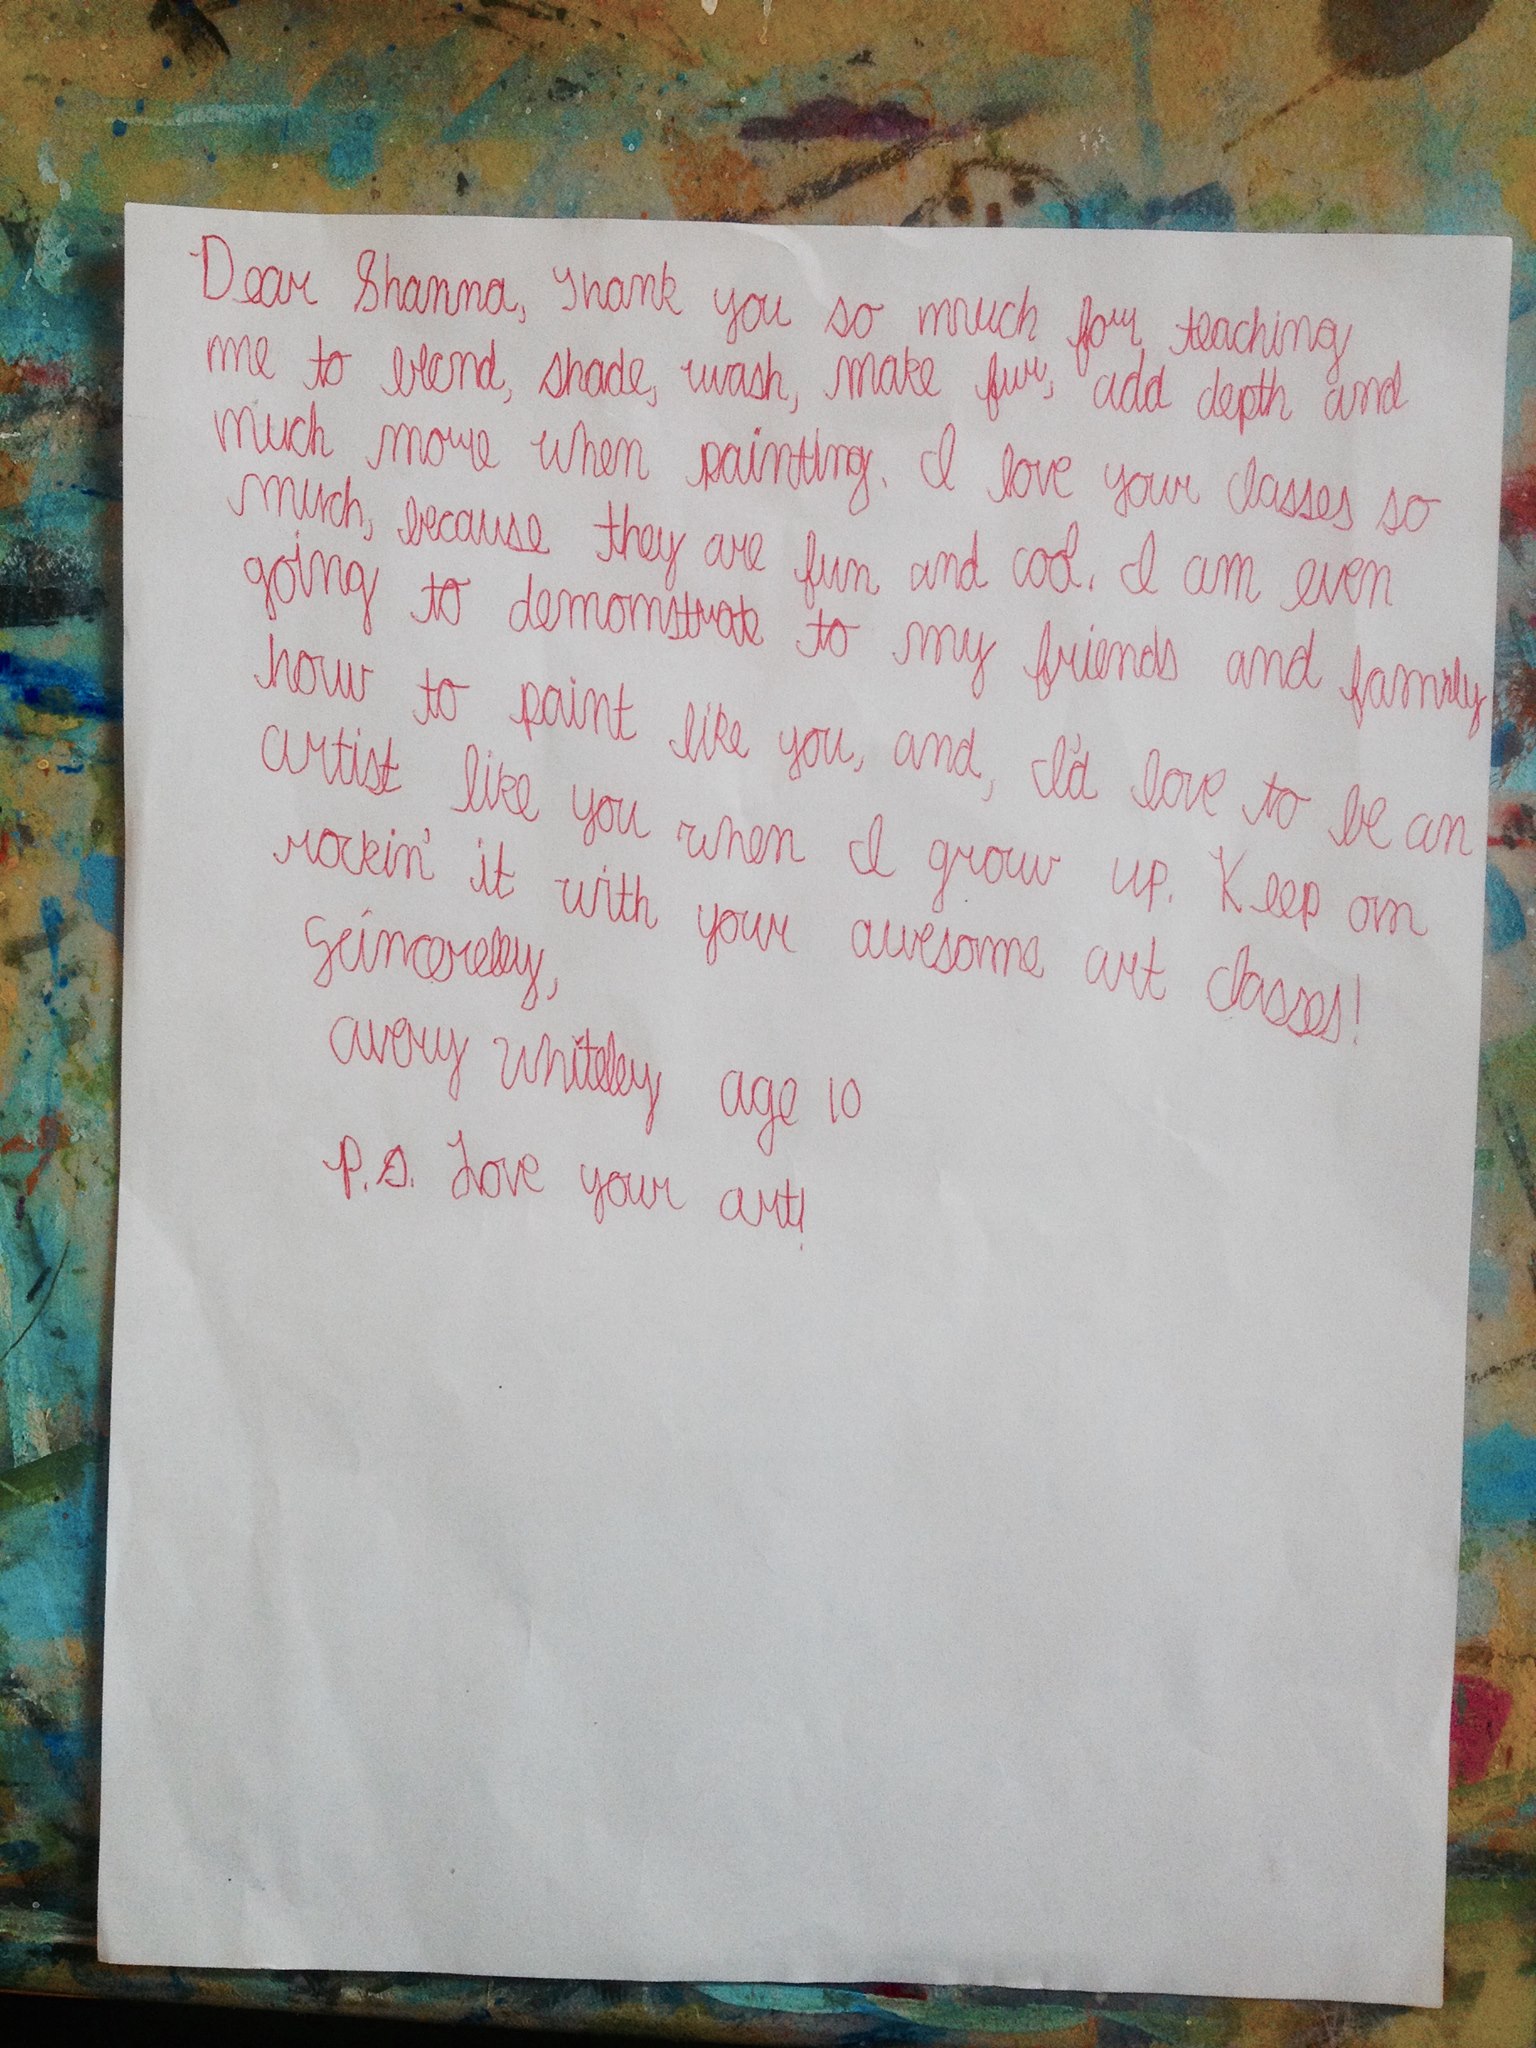 Dear Shanna, Thank you so much for teaching
me to blend, shade, wash, make fur, add depth and
much more when painting. I love your classes so
much, because they are fun and cool. I am even
going to demonstrate to my friends and family
how to paint like you, and, I'd love to be an
artist like you when I grow up. Keep on
rockin' it with your awesome art classes!
Scincereley,
Avery Whiteley age 10
P.S. Love your art!